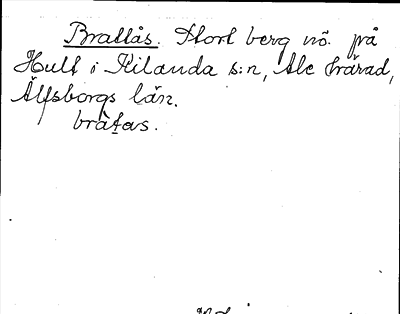 Brattås. Stort berg nö. på
Hult i Kilanda s:n, Ale härad,
Älfsborgs län.
bråtas.